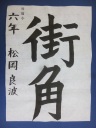 街角
六年 松岡良波